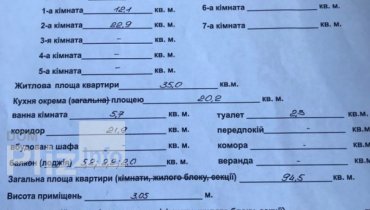 1-а кімната 12,1 кв. м. 6-а кімната
2-а кімната 22,9 кв. м. 7-а кімната
3-я кімната - кв. м.
4-а кімната - кв. м.
5-а кімната - кв. м.
Житлова площа квартири 35,0 кв.м.
Кухня окрема (загальна) площею 20,2 кв. м.
ванна кімната 5,7 кв. м. туалет 2,3 кв.м.
коридор 21,9 кв. м. передпокій - кв.м.
вбудована шафа - кв. м. комора - кв.м.
балкон (лоджія) кв. м. веранда - кв.м.
Загальна площа квартири (кімнати, жилого блоку, секції) 94,5 кв.м.
Висота приміщень 3.05 м.